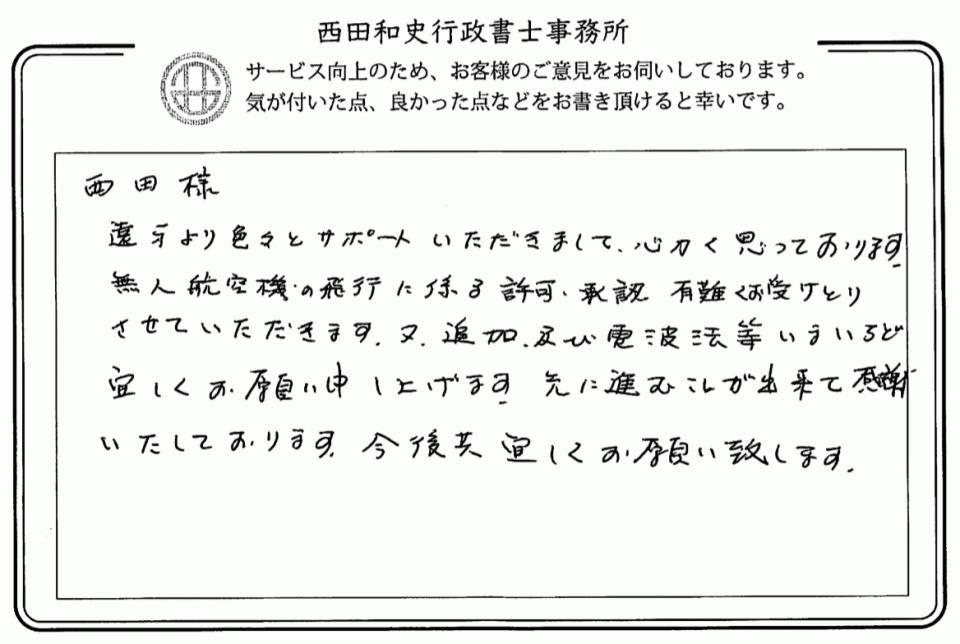 西田和史行政書士事務所
サービス向上のため、お客様のご意見をお伺いしております。
気が付いた点、良かった点などをお書き頂けると幸いです。
西田様
遠方より色々とサポートいただきまして、心力く思っております。
無人航空機の飛行に係る許可・承認 有難くお受けとり
させていただきます。又、追加、及び電波法等いまいろど
宜しくお願い申し上げます。先に進むことが出来て感謝
いたしております。今後共宜しくお願い致します。